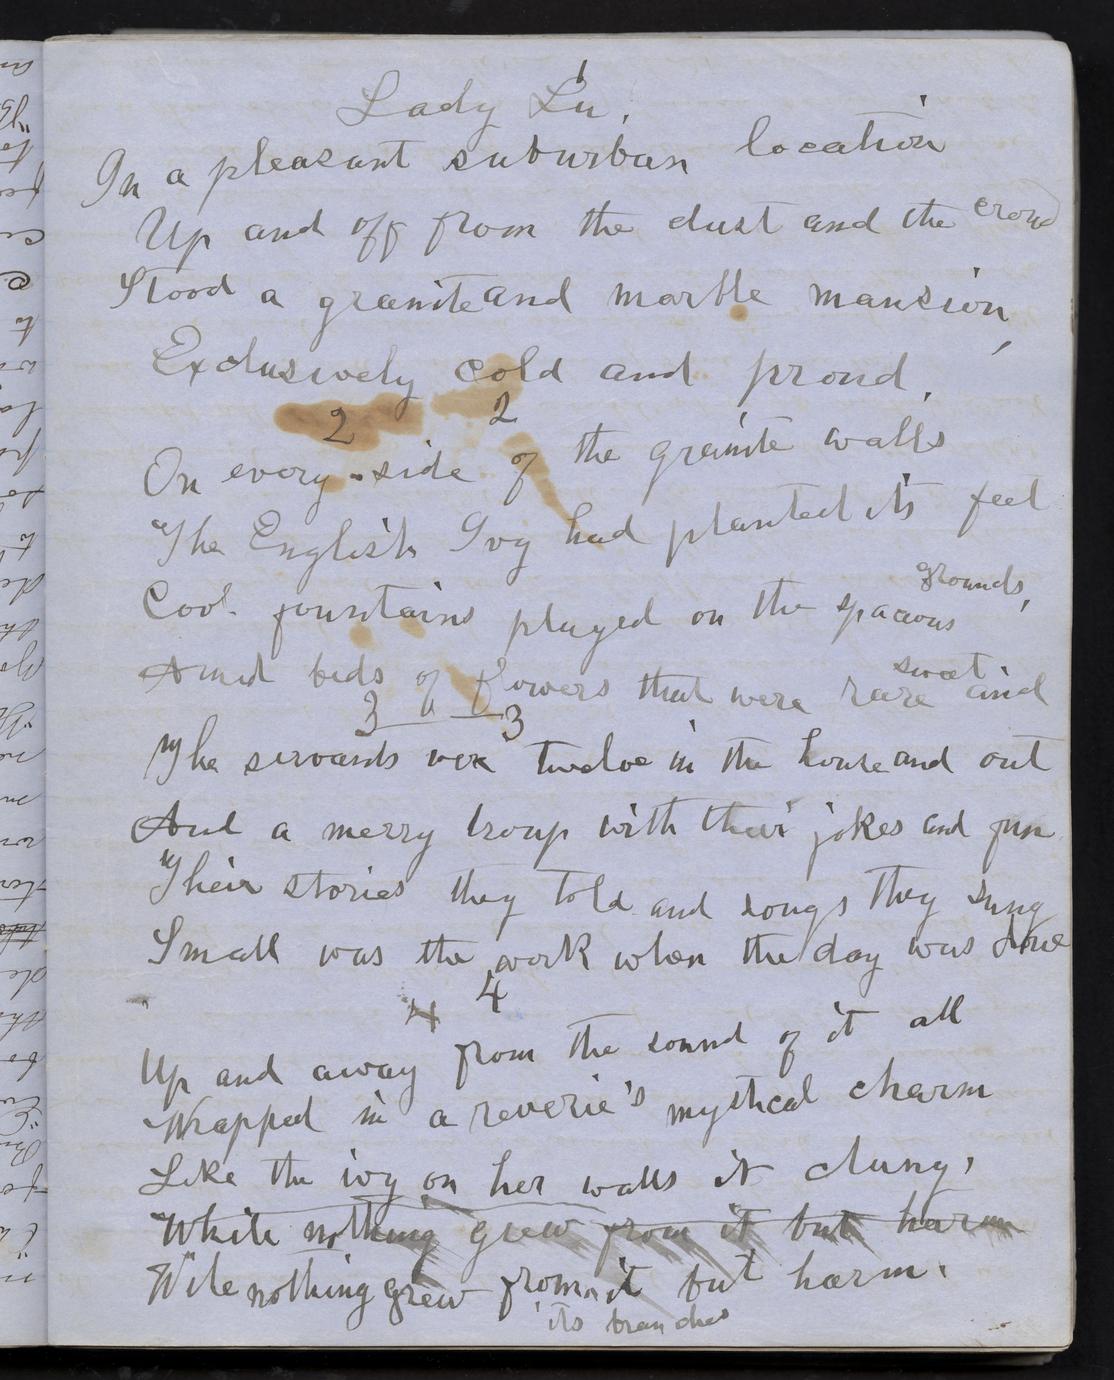 1
Lady Lu,
In a pleasant suburban location
Up and off from the dust and the crowd
Stood a granite and marble mansion,
Exclusively cold and proud,
2 2
On every side of the granite walls
The English Ivy had planted its feet
Cool fountains played on the spacious grounds,
Amid beds of flowers that were rare and sweet
3 3
The servants were twelve in the house and out
And a merry troup with their jokes and fun
Their stories they told and songs they sung
Small was the work when the day was done
4 4
Up and away from the sound of it all
Wrapped in a reverie's mystical charm
Like the ivy on her walls it clung,
While nothing grew from it but harm
Wile nothing grew from it but harm.
its branches